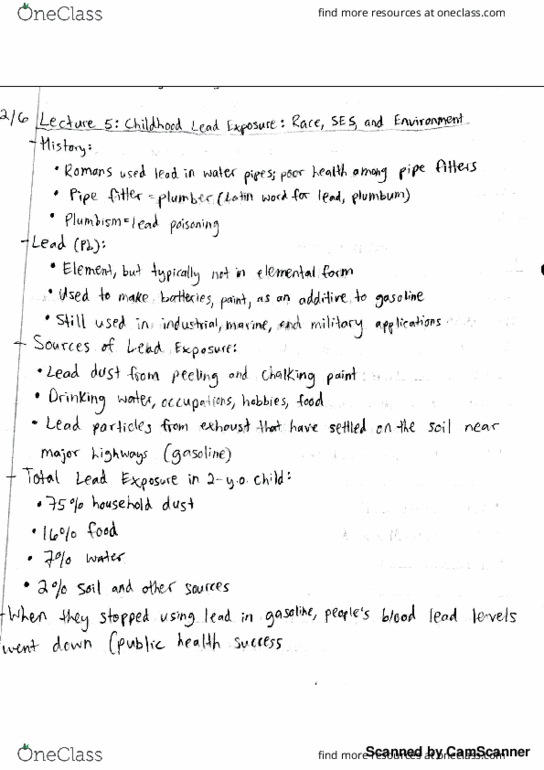 OneClass
find more resources at oneclass.com
2/6 Lecture 5: Childhood Lead Exposure: Race, SES, and Environment
- History:
• Romans used lead in water pipes; poor health among pipe fitters
• Pipe fitter = plumber (Latin word for lead, plumbum)
• Plumbism = lead poisoning
- Lead (Pb):
• Element, but typically not in elemental form
• Used to make batteries, paint, as an additive to gasoline
• Still used in industrial, marine, and military applications
- Sources of Lead Exposure:
• Lead dust from peeling and chalking paint
• Drinking water, occupations, hobbies, food
• Lead particles from exhaust that have settled on the soil near
major highways (gasoline)
- Total Lead Exposure in 2-y.o. child:
• 75% household dust
• 16% food
• 7% water
• 2% soil and other sources
- When they stopped using lead in gasoline, people's blood lead levels
went down (public health success
OneClass
find more resources at oneclass.com
Scanned by CamScanner